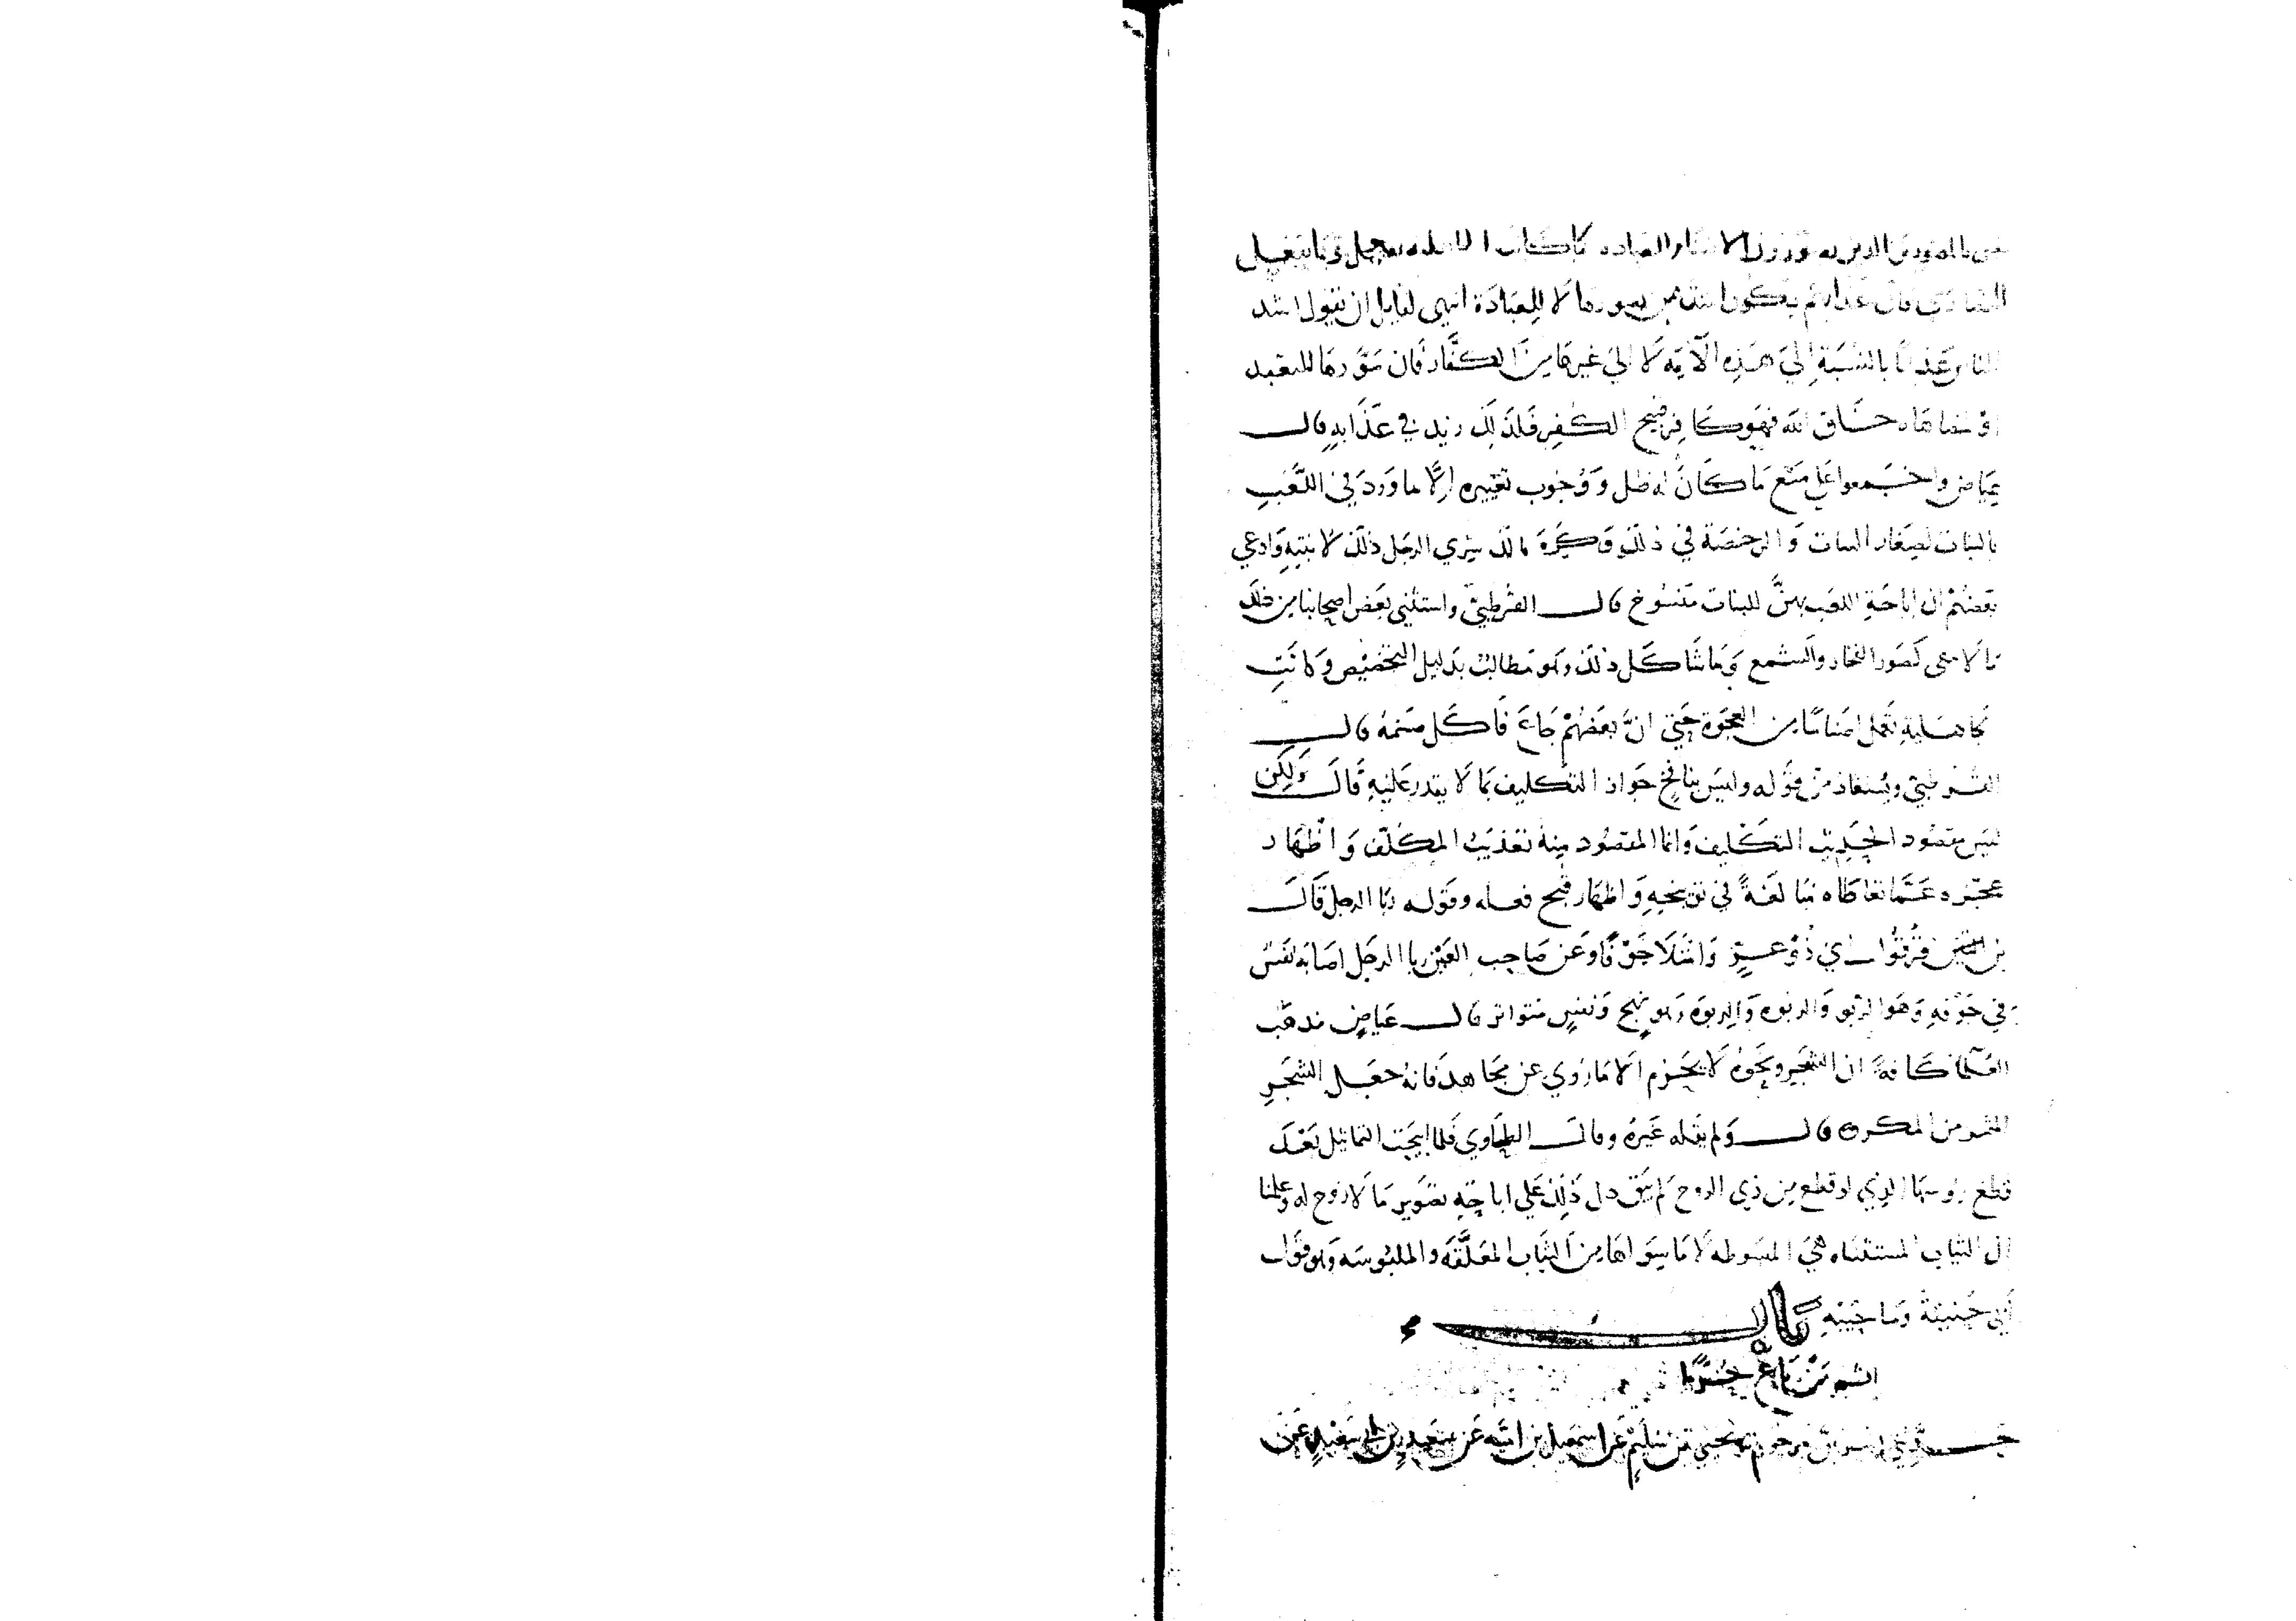 المصورين الذين يصورون الاصنام للعباده كما كانت الجاهليه تفعل وكما يفعل
النصارى فان عذابهم يكون اشد ممن يصورها لا للعبادة انتهى لقايل ان يقول اشد
الناس عذابا بالنسبة الي هذه الامة لا الي غيرها من الكفار فان صورها للتعبد
او لمضاهاه خلق الله فهو كافر قبيح الكفر فلذلك زيد في عذابه قال
عياض واجمعوا علي منع ما كان له ظل ووجوب تغييره الا ما ورد في اللعب
بالبنات لصغار البنات والرخصة في ذلك وكره مالك شري الرجل ذلك لابنته وادعي
بعضهم ان اباحة اللعب بهن للبنات منسوخ قال القرطبي واستثني بعض اصحابنا من ذلك
ما لا يبقى كصور الفخار والشمع وما شاكل ذلك وهو مطالب بدليل التخصيص وكانت
الجاهلية تعمل اصناما من العجوة حتي ان بعضهم جاع فاكل صنمه قال
القرطبي ويستفاد من قوله وليس بنافخ جواز التكليف بما لا يقدر عليه قال ولكن
ليس مقصود الحديث التكليف وانما المقصود منه تعذيب المكلف واظهار
عجزه عما تعاطاه مبالغة في توبيخه واظهار قبح فعله وقوله ربا الرجل قال
بن التين اي ذعر وامتلا خوفا وعن صاحب العين ربا الرجل اصابه نفس
في جوفه وهو الربو والربوه والربوه وهو نهج ونفس متواتر قال عياض مذهب
العلما كافة ان الشجر ونحوه لا يحرم الا ما روي عن مجاهد فانه جعل الشجر
المثمر من المكروه قال ولم يقله غيره وقال الطحاوي فلما ابيحت التماثيل بعد
قطع روسها الذي لو قطع من ذي الروح لم يبق دل ذلك علي اباحة تصوير ما لا روح له وعلمنا
ان الثياب المستثناه هي المبسوطه لا ما سواها من الثياب المعلقه والملبوسه وهو قول
ابي حنيفة وصاحبيه باب
اثم من باع حرا
حدثني بشر بن مرحوم ثنا يحيى بن سليم عن اسمعيل بن اميه عن سعيد بن ابي سعيد عن